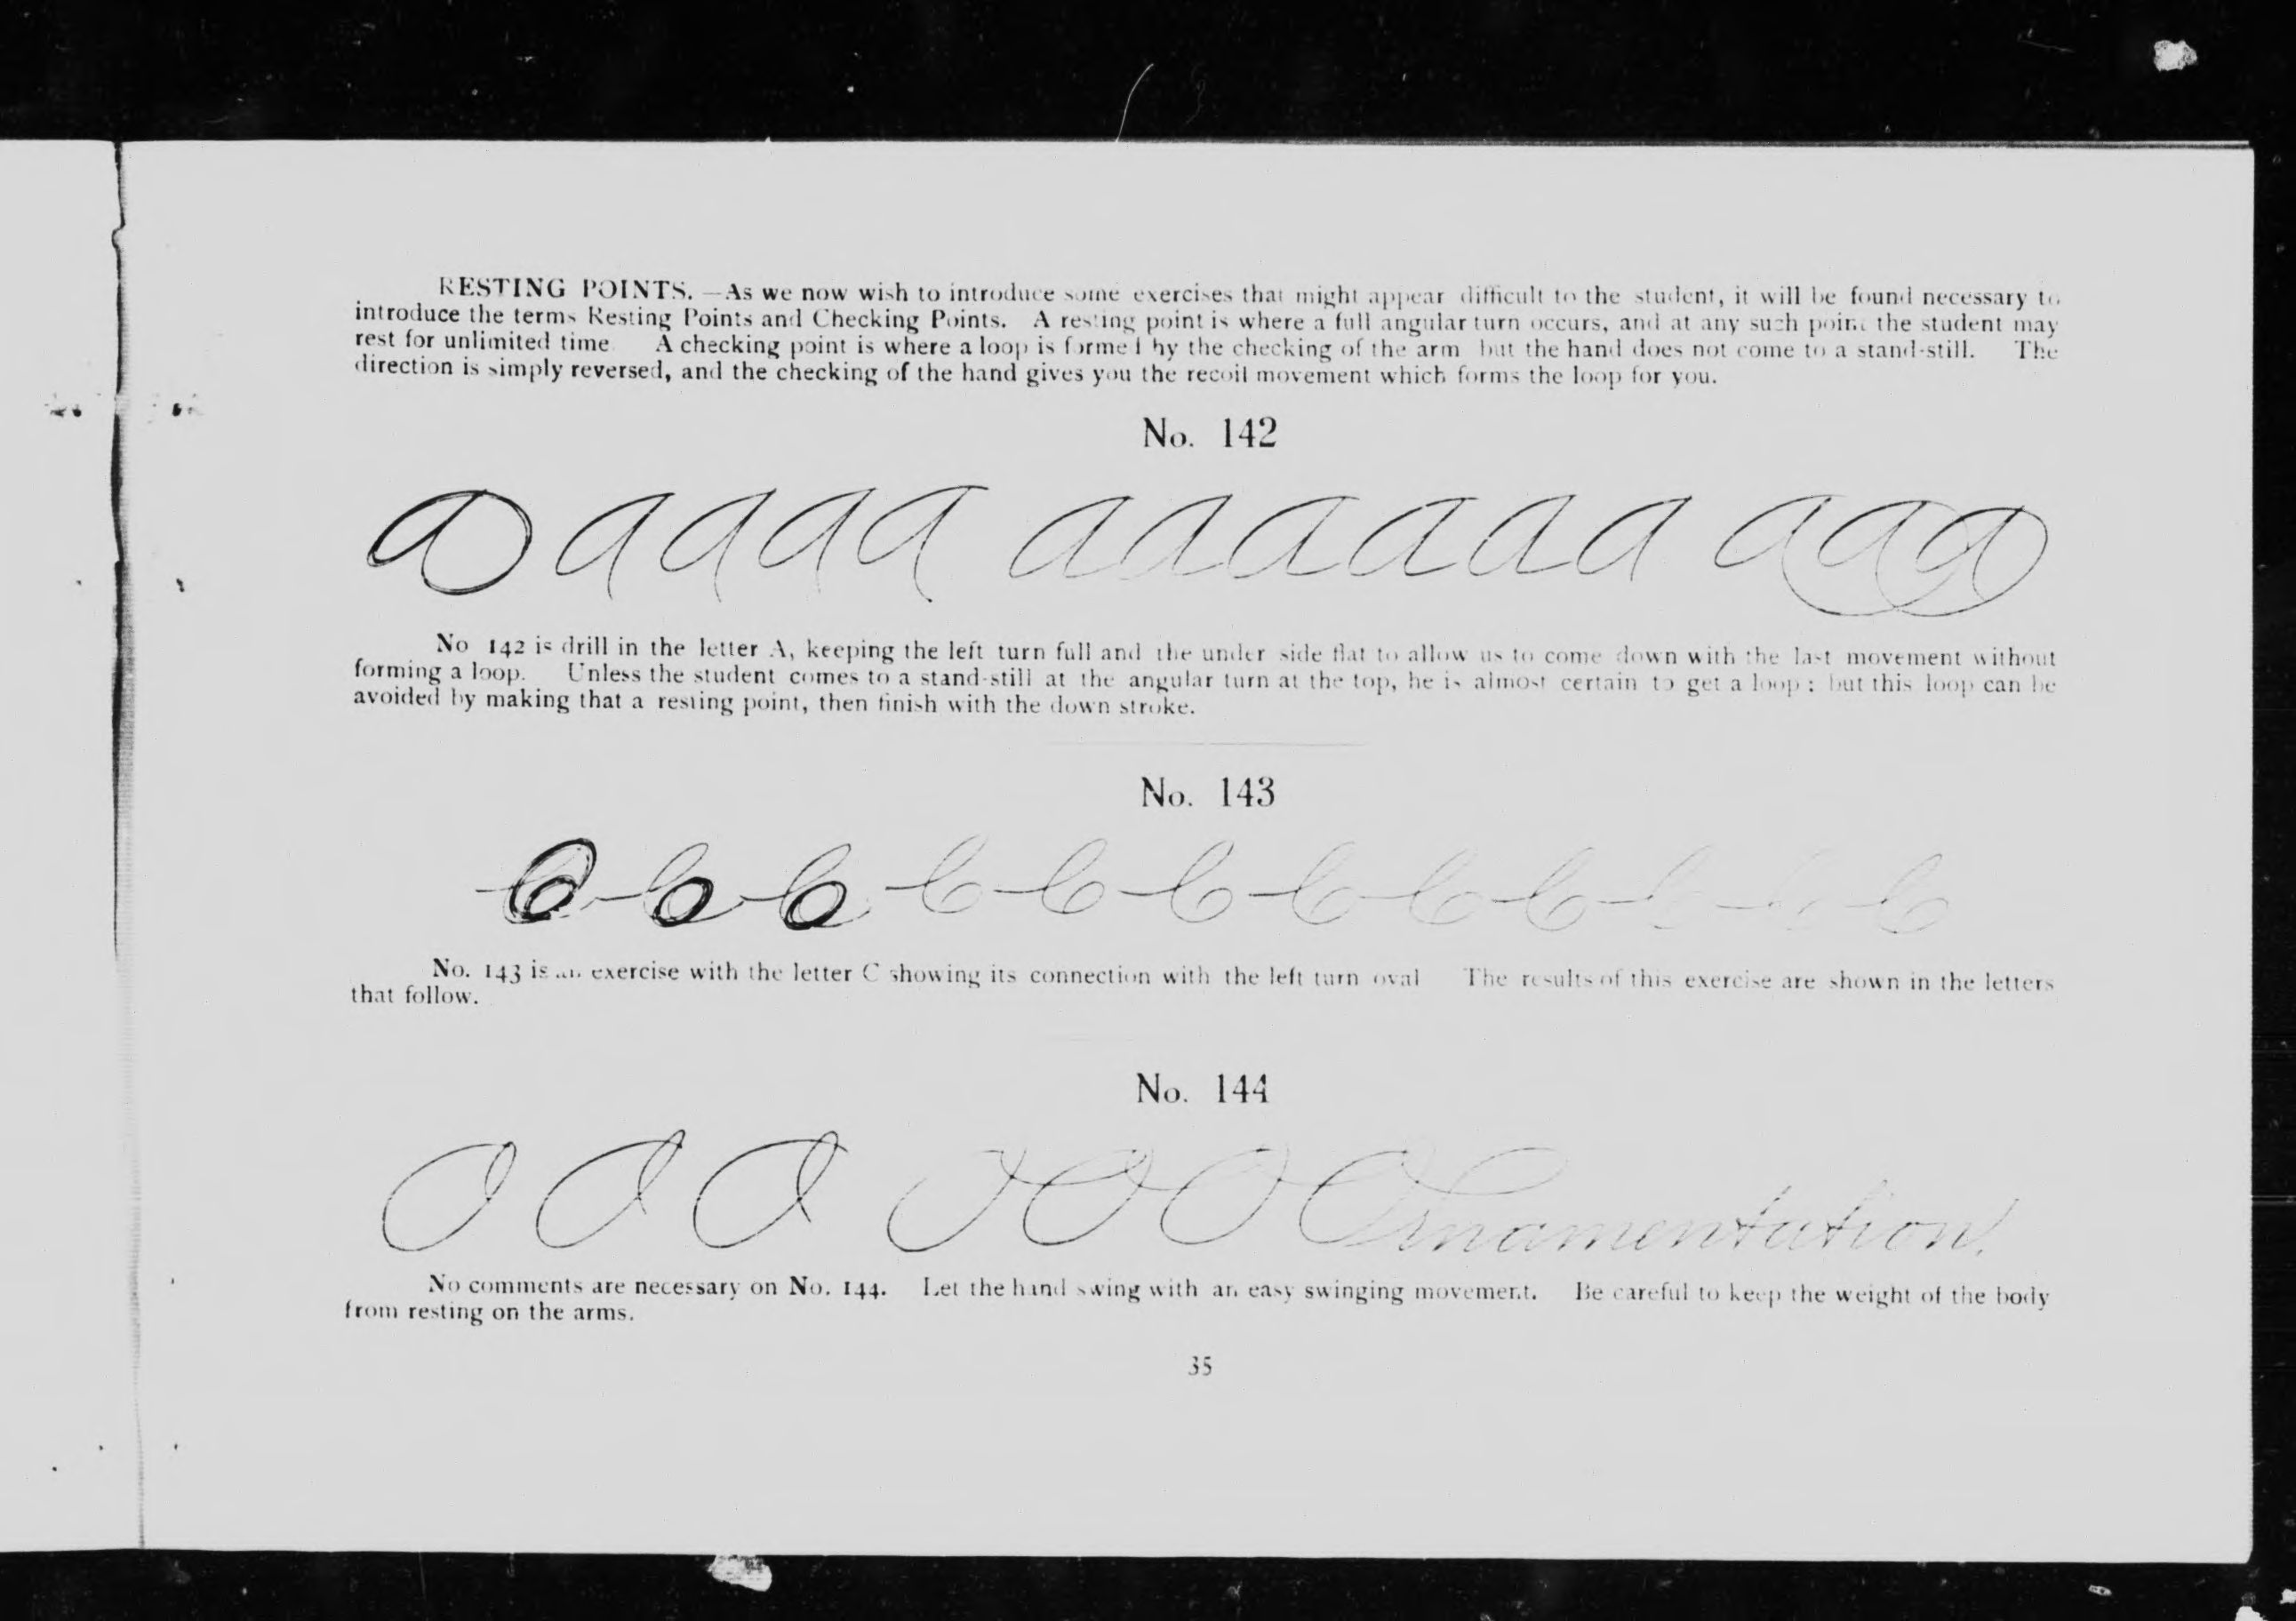 RESTING POINTS. —As we now wish to introduce some exercises that might appear difficult to the student, it will be found necessary to
introduce the terms Resting Points and Checking Points. A resting point is where a full angular turn occurs, and at any such point the student may
rest for unlimited time A checking point is where a loop is formed by the checking of the arm but the hand does not come to a stand-still. The
direction is simply reversed, and the checking of the hand gives you the recoil movement which forms the loop for you.
No. 142
a a a a a a a a a a a a a a
No 142 is drill in the letter A, keeping the left turn full and the under side flat to allow us to come down with the last movement without
forming a loop. Unless the student comes to a stand-still at the angular turn at the top, he is almost certain to get a loop ; but this loop can be
avoided by making that a resting point, then finish with the down stroke.
No. 143
C C C C C C C C C C C C
No. 143 is an exercise with the letter C showing its connection with the left turn oval The results of this exercise are shown in the letters
that follow.
No. 144
O O O O O O Ornamentation.
No comments are necessary on No. 144. Let the hand swing with an easy swinging movement. Be careful to keep the weight of the body
from resting on the arms.
35